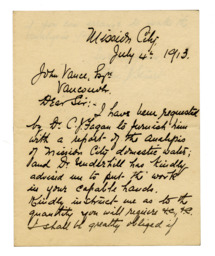 Mission City,
July 4th 1913.
John Vance, Esq.
Vancouver.
Dear Sir:-
I have been requested
by Dr. C.J. Fagan to furnish him
with a report of the analysis
of Mission City domestic water;
and Dr. Underhill has kindly
advised me to put the work
in your capable hands.
Kindly instruct me as to the
quantity you will require &c, &c.
I shall be greatly obliged if